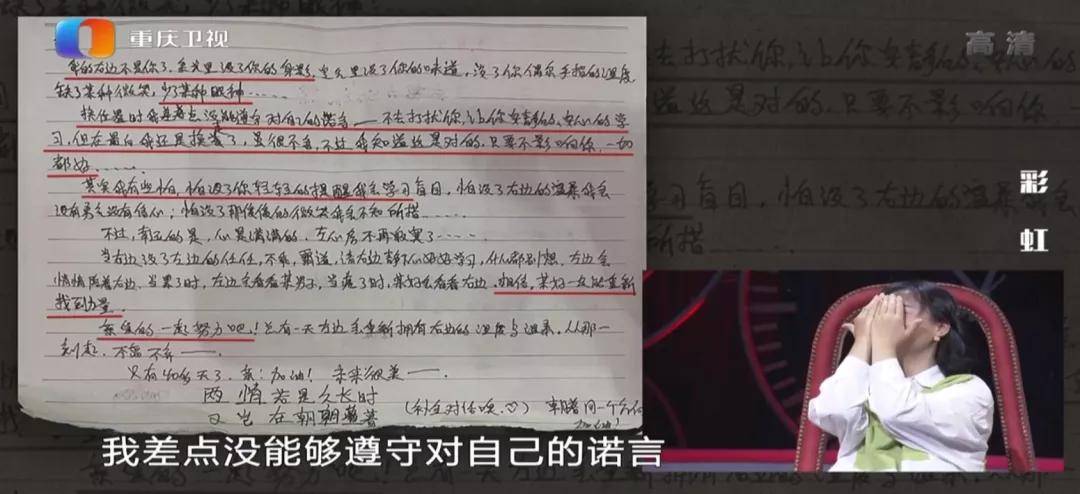 重庆卫视
高清
我的右边不是你了，教室里没了你的身影，空气里没了你的味道，没了你偶尔手指的温度
缺了某种微笑，少了某种眼神……
换位置时我差点没能遵守对自己的诺言——不去打扰你，让你安静的、安心的学
习，但在最后我还是换着了，虽很不舍，不过我知道这是对的，只要不影响你，一切
都好……
其实我有些怕，怕没了你轻轻的提醒我会学习盲目，怕没了右边的温柔我会
没有勇气没有信心；怕没了那傻傻的微笑我会不知所措……
不过，幸运的是，心是满满的，左心房不再寂寞了……
当右边没了左边的任性，不乖，霸道，请右边静下心好好学习，什么都别想，左边会
悄悄陪着右边，当累了时，左边会看看某男子，当疲了时，某女会看看右边，相信，某女一定能重新
找到力量。
亲爱的一起努力吧！总有一天左边会重新拥有右边的温度与温柔，从那一
刻起，不离不弃——
只有40多天了，亲：加油！未来很美——
两情若是久长时
又岂在朝朝暮暮
（补全对给哦♡）
我差点没能够遵守对自己的诺言
彩虹